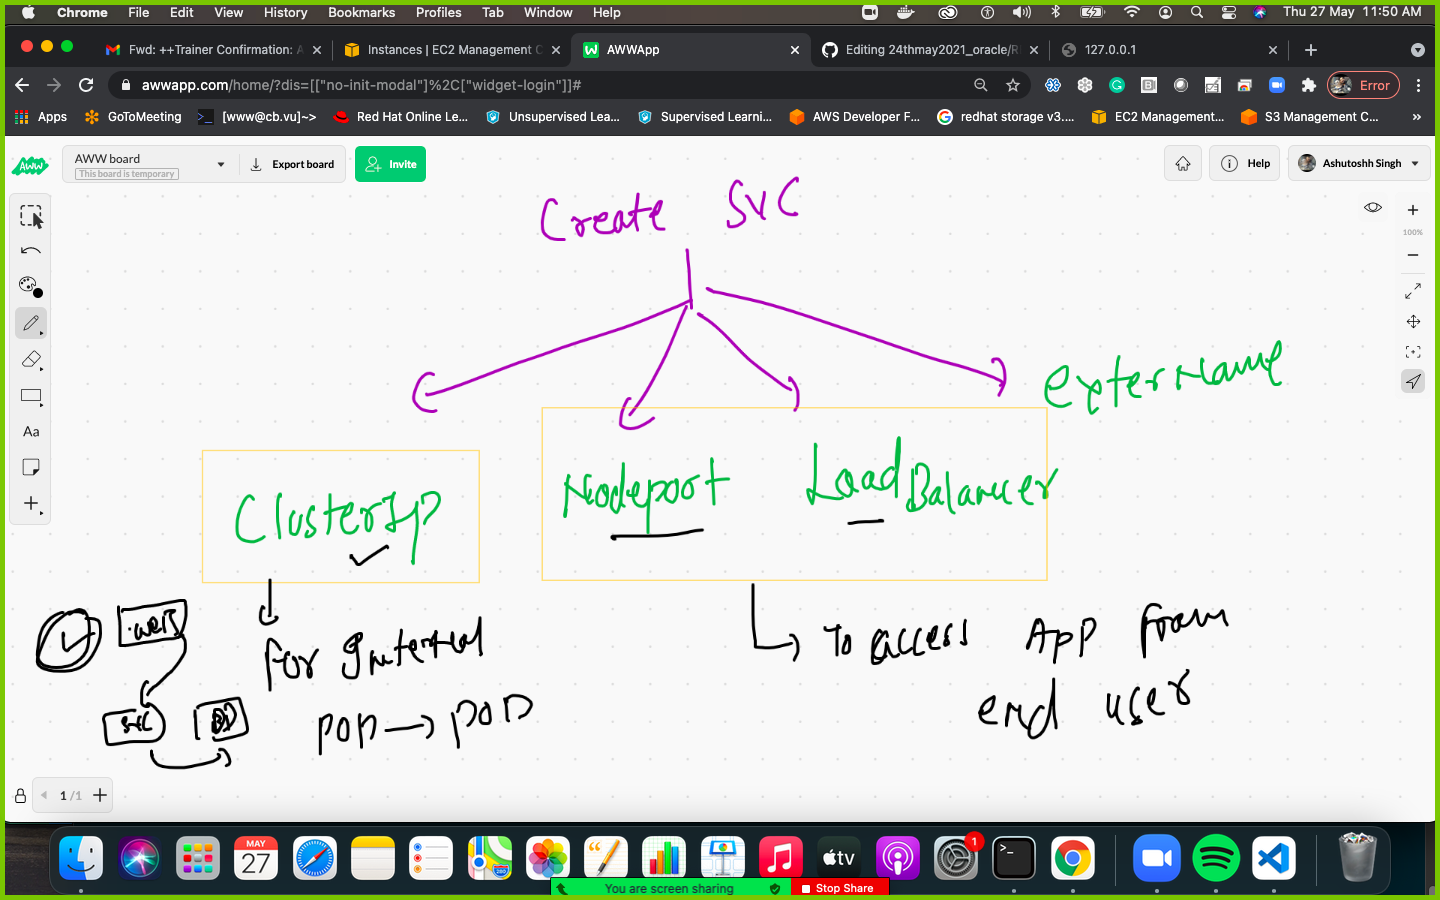 Chrome File Edit View History Bookmarks Profiles Tab Window Help Thu 27 May 11:50 AM
Fwd: ++Trainer Confirmation: A Instances | EC2 Management C AWWApp Editing 24thmay2021_oracle/R 127.0.0.1
awwapp.com/home/?dis=[["no-init-modal"]%2C["widget-login"]]# Error
Apps GoToMeeting [www@cb.vu]~> Red Hat Online Le... Unsupervised Lea... Supervised Learni... AWS Developer F... redhat storage v3.... EC2 Management... S3 Management C... »
AWW
AWW board
This board is temporary
Export board Invite Help Ashutoshh Singh
100%
Aa
Create SVC
exterName
ClusterIp Nodeport Load Balancer
web
for Internal
To access App from
end user
SVC DB
POD → POD
1 /1
MAY
27
tv
1
You are screen sharing Stop Share